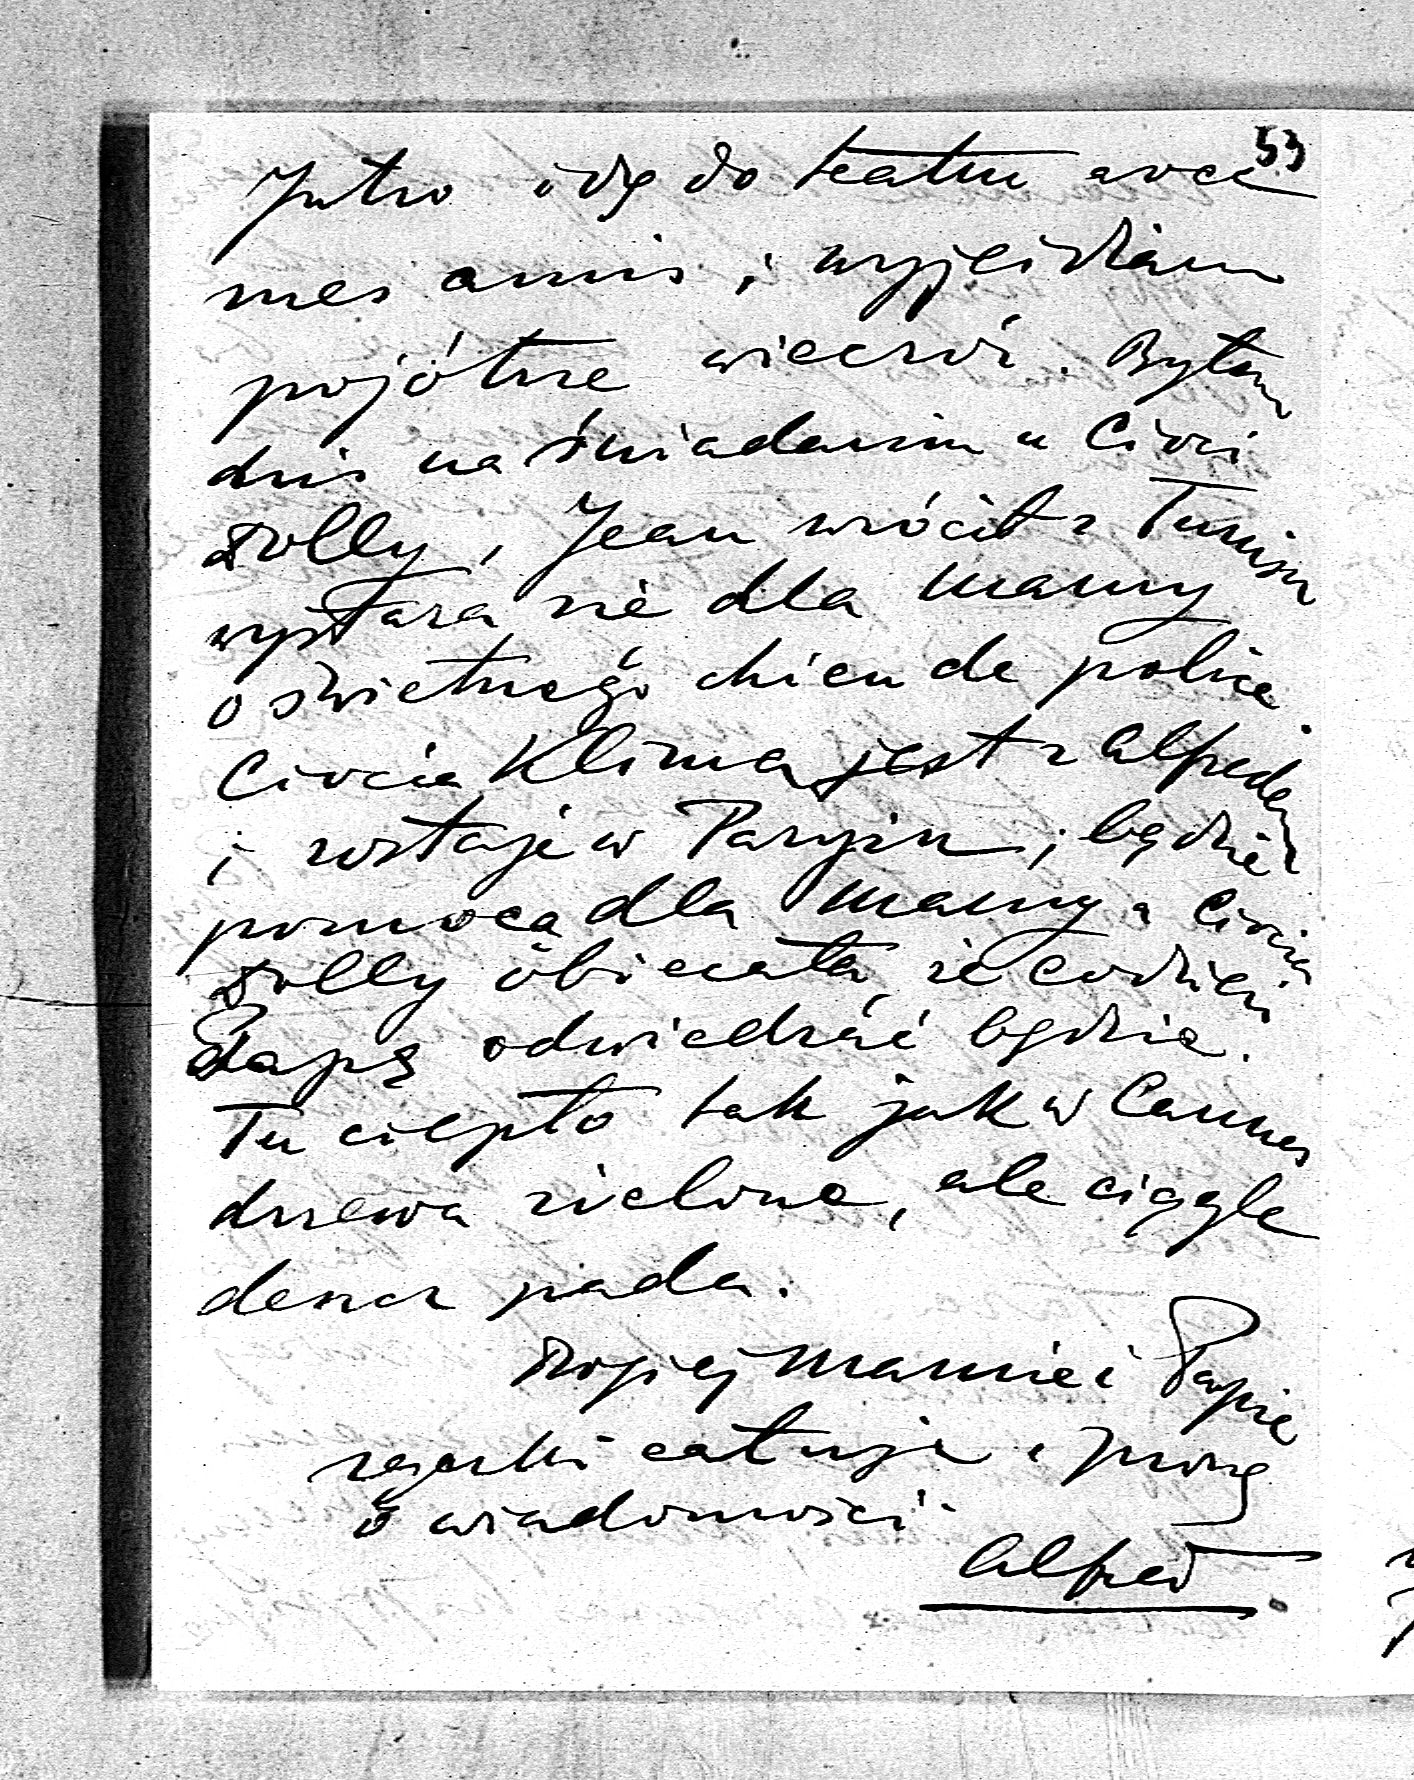 53
Jutro idę do teatru avec
mes amis i wyjeżdżam
pojótrze wieczór. Byłam
dziś na śniadaniu u Cioci
Dolly, Jean wrócił z Tunisu
wystara się dla Mamy
o świetnego chien de police.
Ciocia Klima jest z Alfredem
i zostaje w Paryżu, będzie
pomocą dla Mamy a Ciocia
Dolly obiecała że codzień
Papę odwiedzać będzie.
Tu ciepło tak jak w Cannes
drzewa zielone, ale ciągle
deszcz pada.
Drogiej Mamie i Papie
rączki całuję i proszę
o wiadomości
Alfred